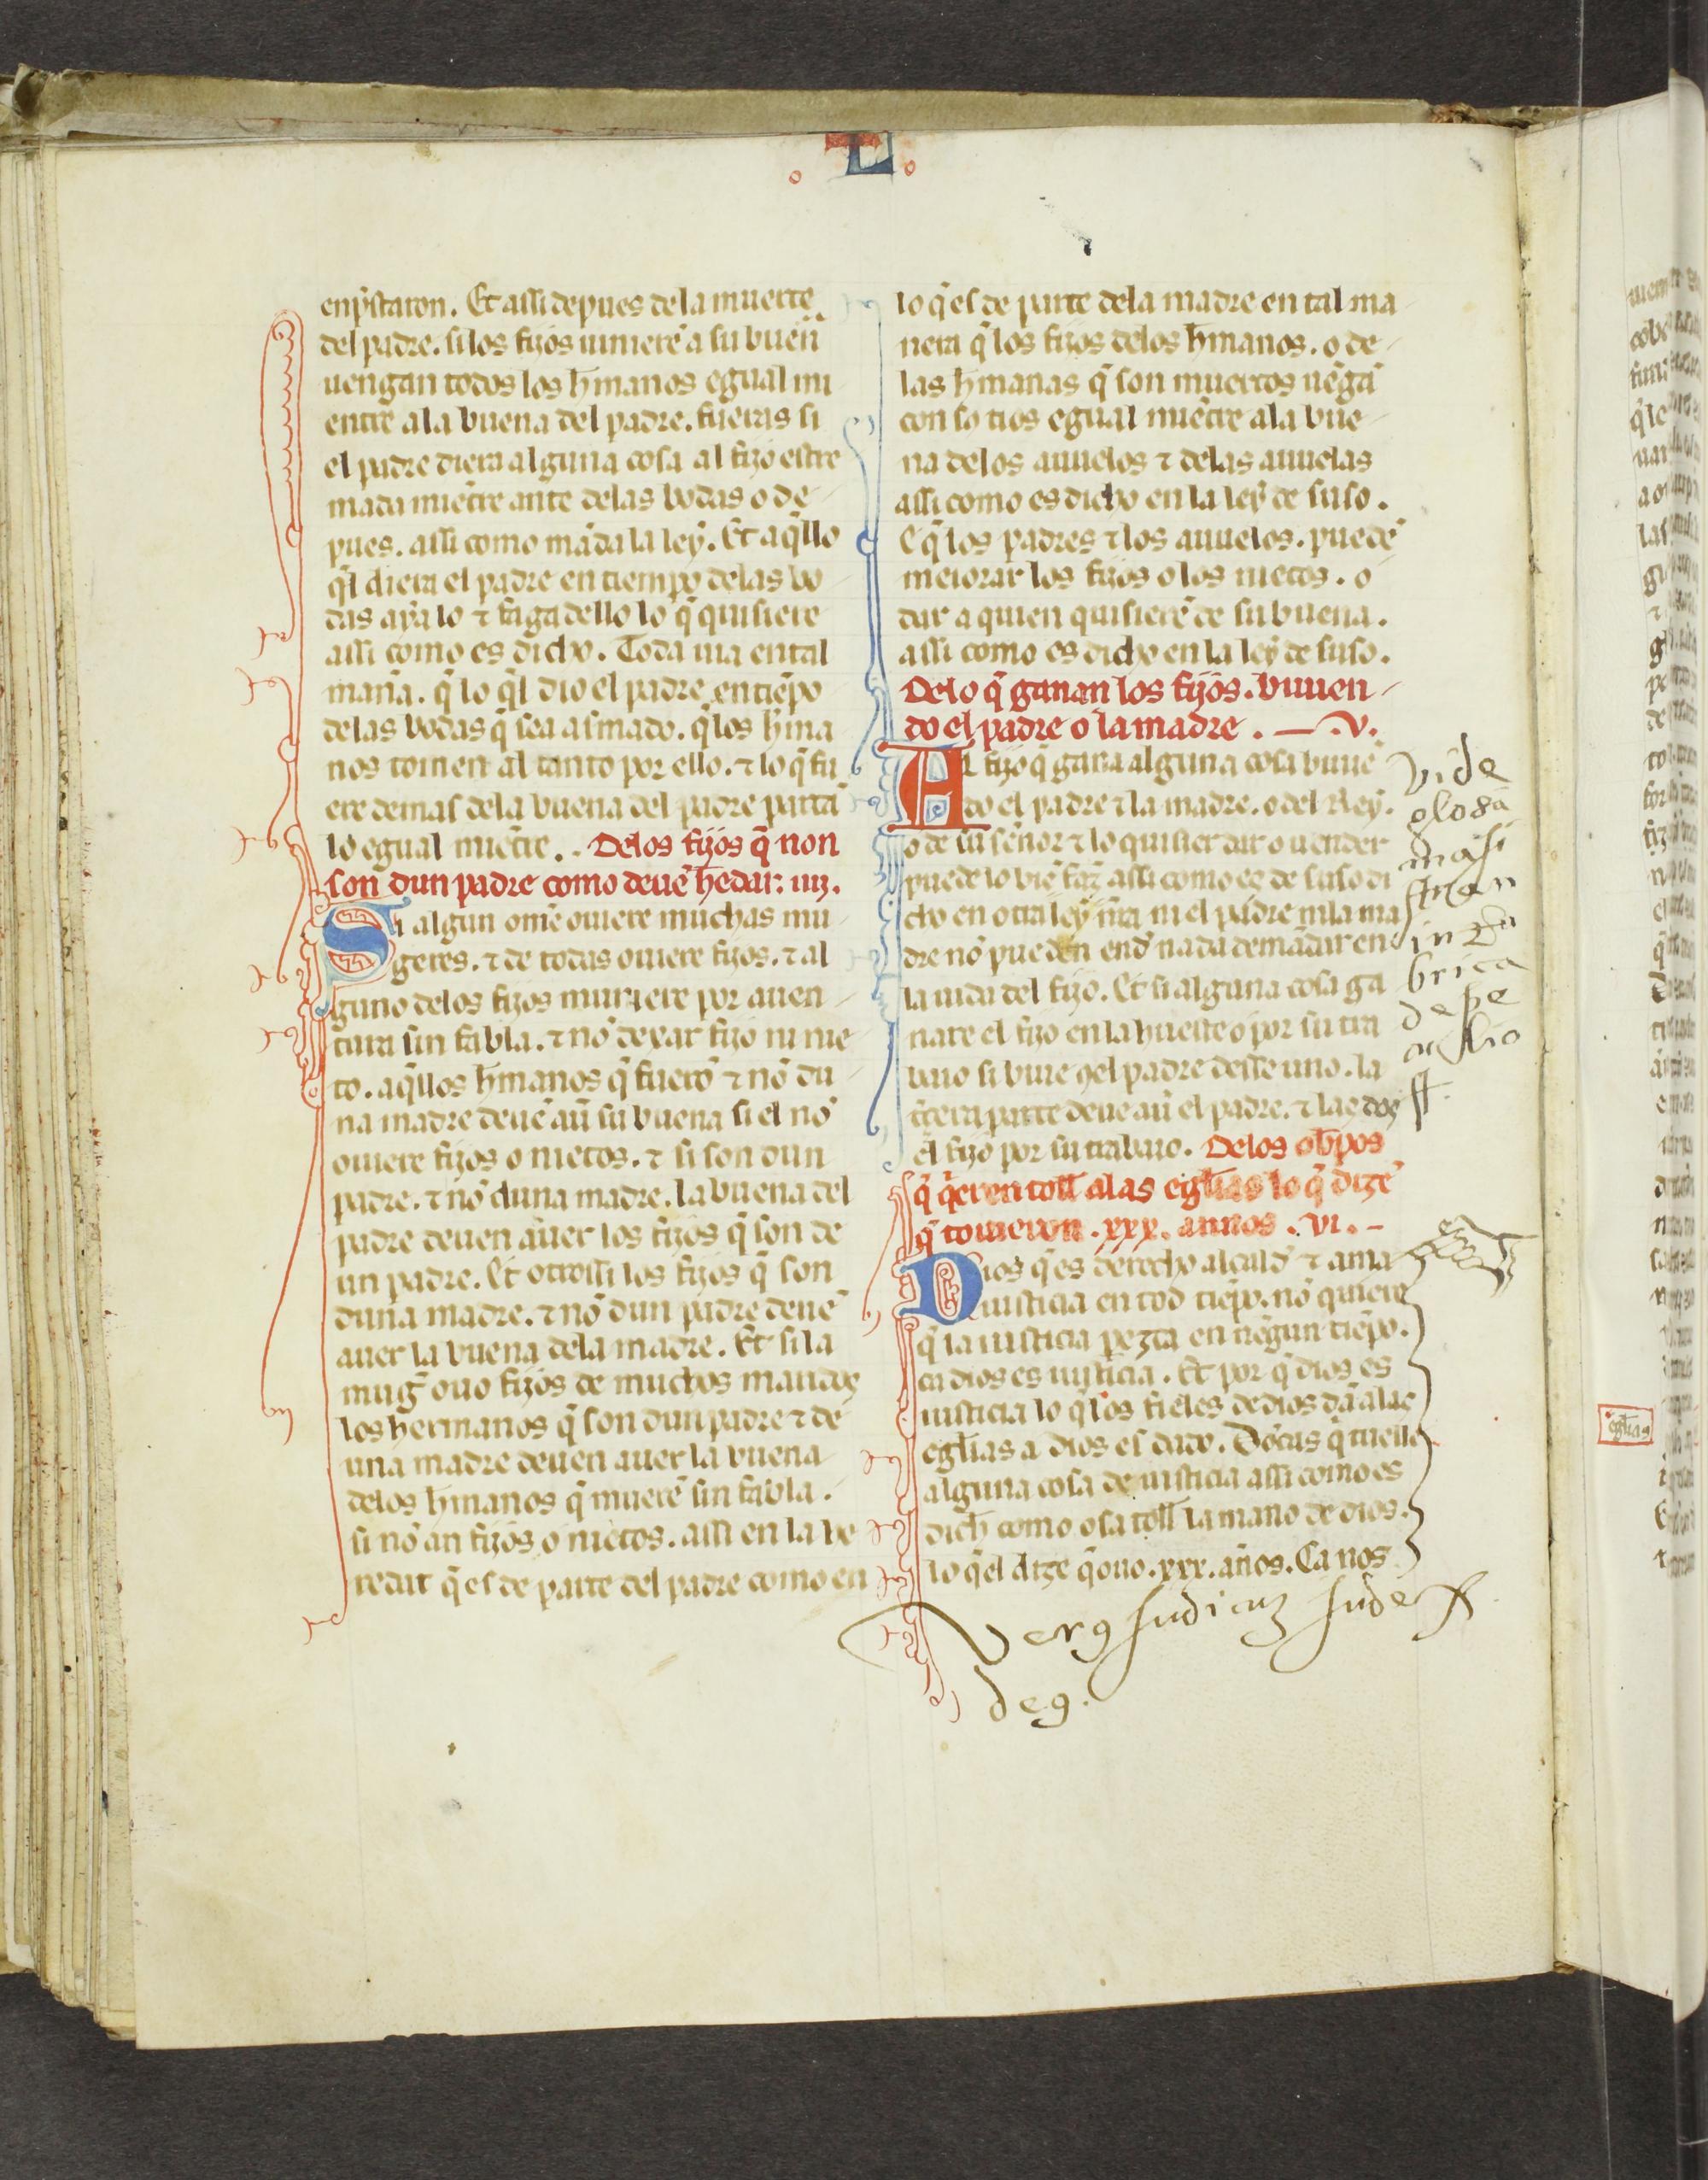 L
enp̃staron. Et assi depues dela muerte
del padre. si los fijos uiniere᷑ a su buen̄
uengan todos los hm̃anos egual mi
entre ala buena del padre. fueras si
el padre diera alguna cosa al fijo estre
mada mie᷑tre ante delas bodas o de-
pues. assi como ma᷑da la ley. Et aq̃llo
q̃l diera el padre en tiempo delas bo
das aya lo ⁊ faga dello lo q̃ quisiere
assi como es dicho. Toda uia en tal
man̄a. q̃ lo q̃l dio el padre en tie᷑po
delas bodas q̃ sea asmado. q̃ los hm̃a
nos tomen al tanto por ello. ⁊ lo q̃ fu
ere demas dela buena del padre parta᷑
lo egual mie᷑tre. Delos fijos q̃ non
son dun padre como deue᷑ hedar: iiij.
Si algun om̃e ouiere muchas mu
geres. ⁊ de todas ouiere fijos. ⁊ al
guno delos fijos muriere por auen-
tura sin fabla. ⁊ no᷑ dexar fijo ni nie
to. aq̃llos hm̃anos q̃ fuero᷑ ⁊ no᷑ du-
na madre deue᷑ au᷑ su buena si el no᷑
ouiere fijos o nietos. ⁊ si son dun
padre. ⁊ no᷑ duna madre. la buena del
padre deuen auer los fijos q̃ son de
un padre. Et otrossi los fijos q̃ son
duna madre. ⁊ no᷑ dun padre deue᷑
auer la buena dela madre. Et si la
mug᷑ ouo fijos de muchos maridos
los hermanos q̃ son dun padre ⁊ de
una madre deuen auer la buena
delos hm̃anos q̃ muere᷑ sin fabla.
si no᷑ an fijos o nietos. assi en la he
redat q̃ es de parte del padre como en
lo q̃ es de parte dela madre en tal ma
nera q̃ los fijos delos hm̃anos. o de-
las hm̃anas q̃ son muertos ue᷑ga᷑
con so tios egual mie᷑tre ala bue-
na delos auuelos ⁊ delas auuelas
assi como es dicho en la ley de suso.
E q̃ los padres ⁊ los auuelos. puede᷑
meiorar los fijos o los nietos. o
dar a quien quisiere᷑ de su buena.
assi como es dicho en la ley de suso.
Delo q̃ ganan los fijos. biuien-
do el padre o la madre. — .v.
El fijo q̃ gana alguna cosa biuie᷑
do el padre ⁊ la madre. o del Rey.
o de su sen̄or ⁊ lo quisier dar o uender
puede lo bie᷑ faz̃ assi como es de suso di
cho en otra ley nr̃a ni el padre ni la ma
dre no᷑ pueden end᷑ nada dema᷑dar en
la uida del fijo. Et si alguna cosa ga
nare el fijo en la hueste o por su tra
baio si biue 9el padre desse uno. la
t᷑cera parte deue au᷑ el padre. ⁊ las dos
el fijo por su trabaio. Delos ob̄pos
q̃ q̃eren toll̄ alas egl̄ias lo q̃ dize᷑
q̃ touieron .xxx. annos .vi. -
Dios q̃ es derecho alcald᷑ ⁊ ama
iusticia en tod tie᷑po. no᷑ quiere
q̃ la iusticia pezca en ne᷑gun tie᷑po.
ca dios es iusticia. Et por q̃ dios es
iusticia lo q̃ los fieles de dios da᷑ alas
egl̄ias a dios es dado. Do᷑cas q̃ tuelle
alguna cosa de iusticia assi como es
dich̄ como osa toll̄ la mano de dios.
lo q̃ el dize q̃ ouo .xxx. an̄os. Ca nos
vide
glosa
in
brica
de pe
culio
ff.
deg.
egl̄ias